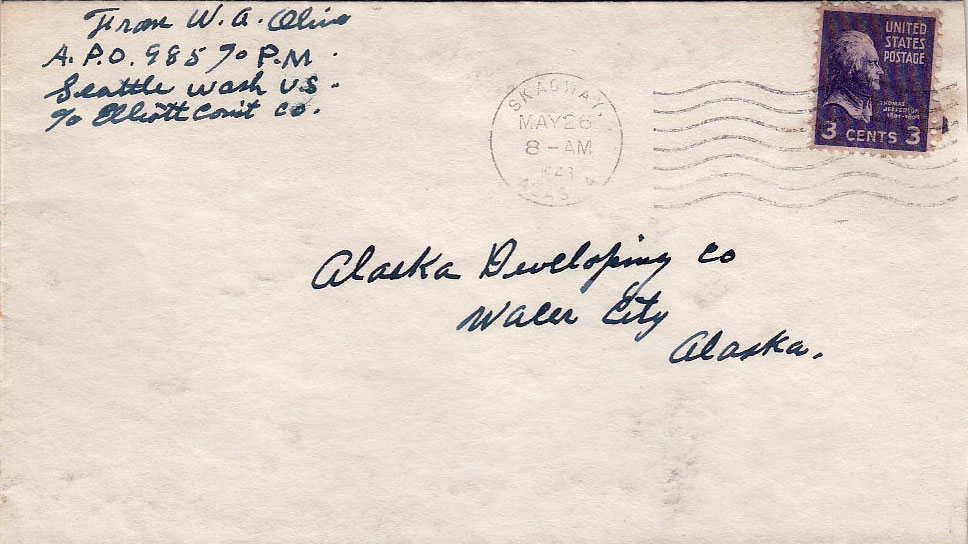 From W. A. Olive
A. P. O. 985 % P. M.
Seattle Wash US.
% Elliott Const Co.
SKAGWAY,
MAY 26
8-AM
ALASKA
UNITED
STATES
POSTAGE
THOMAS
JEFFERSON
3 CENTS 3
Alaska Developing Co
Waler City
Alaska.